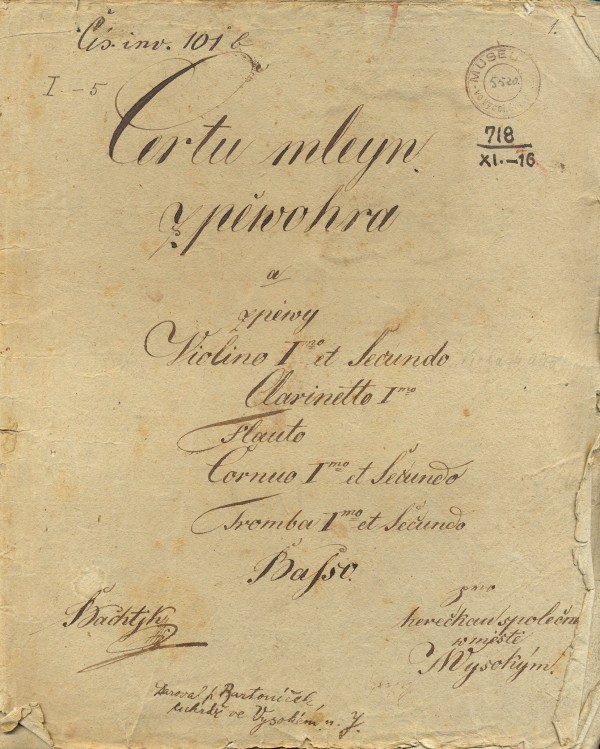 Čís. inv. 101 b
1.
I - 5
MUSEU
5520
718
XI.-16
Čertu mleyn
zpěwohra
a
zpěwy
Violino I mo et Secundo
Clarinetto I mo
Flauto
Cornuo I mo et Secundo
Tromba I mo et Secundo
Baſso.
pro
herečkau společn
w mjstě
Wysokým!
Bachtjk
Daroval p. Bartoníček
ve Vysokém n. J.